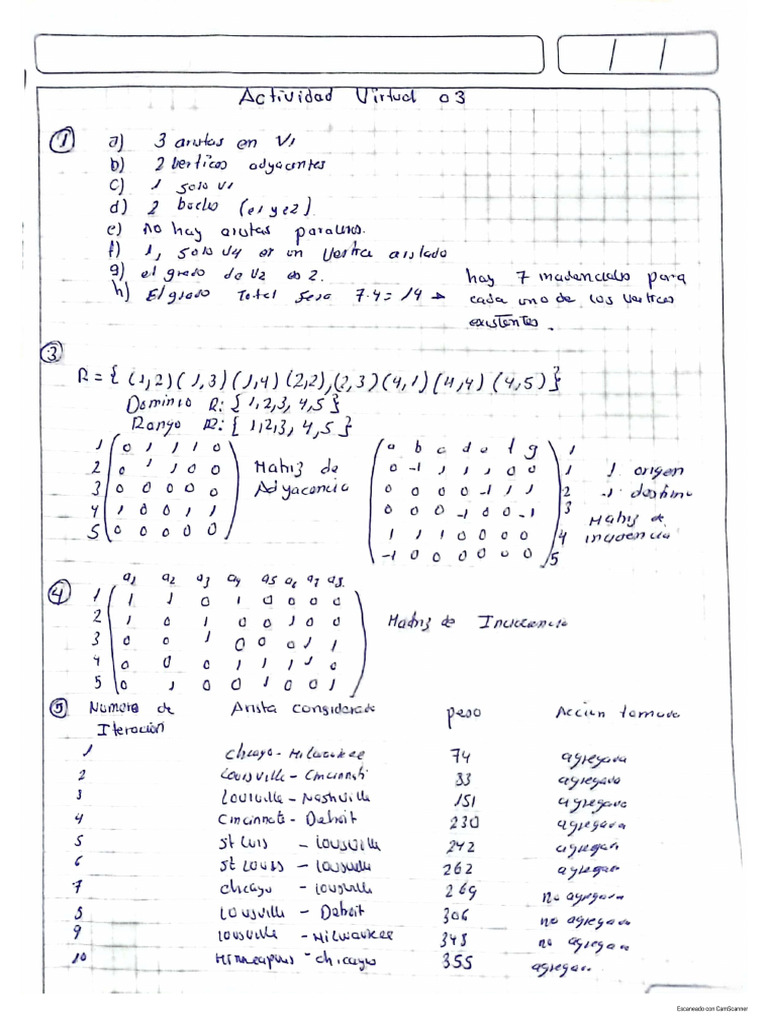 / /
Actividad Virtual 03
① a) 3 aristas en V1
b) 2 vertices adyacentes
c) 1 solo V1
d) 2 bucles (e1 y e2).
e) no hay aristas paralelas.
f) 1, solo V4 es un vertice aislado
g) el grado de V2 es 2.
h) El grado Total sera 7·4 = 14 → hay 7 incidencias para cada uno de los vertices existentes.
③
R = { (1,2) (1,3) (1,4) (2,2), (2,3) (4,1) (4,4) (4,5) }
Dominio R: { 1,2,3, 4,5 }
Rango R: { 1,2,3, 4,5 }
1 0 1 1 1 0
2 0 1 1 0 0
3 0 0 0 0 0
4 1 0 0 1 1
5 0 0 0 0 0
Matriz de
Adyacencia
a b c d e f g 1
0 -1 1 1 1 0 0 1
0 0 0 0 -1 1 1 2
0 0 0 -1 0 0 -1 3
1 1 1 0 0 0 0 4
-1 0 0 0 0 0 0 5
1 origen
-1 destino
Matriz de
incidencia
④ a1 a2 a3 a4 a5 a6 a7 a8
1 1 1 0 1 0 0 0 0
2 1 0 1 0 0 1 0 0
3 0 0 1 0 0 0 1 1
4 0 0 0 1 1 1 1 0
5 0 1 0 0 1 0 0 1
Matriz de Incidencia
⑤ Numero de Iteración Arista considerada peso Accion tomada
1 Chicago - Milwaukee 74 agregada
2 Louisville - Cincinnati 83 agregada
3 Louisville - Nashville 151 agregada
4 Cincinnati - Detroit 230 agregara
5 St Luis - Lousville 242 agregar
6 St Louis - Lousville 262 agregar
7 Chicago - lousville 269 no agregara
8 Lousville - Detroit 306 no agregara
9 lousville - Milwaukee 348 no agregar
10 Minneapolis - chicago 355 agregar
Escaneado con CamScanner